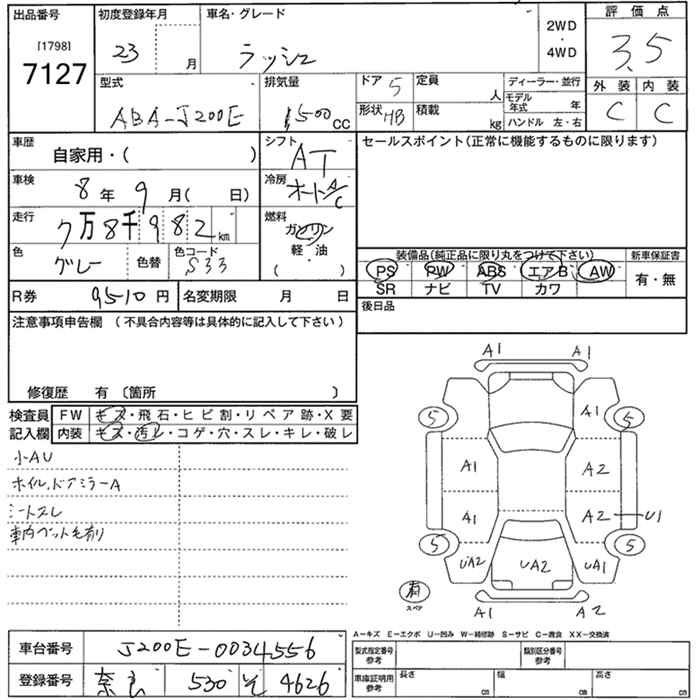 出品番号
[1798]
7127
初度登録年月
23 月
車名・グレード
ラッシュ
2WD
・
4WD
評価点
3.5
型式
ABA-J200E
排気量
1500cc
ドア 5
定員 人
ディーラー・並行
モデル年式 年
形状 HB
積載 kg
ハンドル 左・右
外装 内装
C C
車歴
自家用・( )
シフト
AT
セールスポイント(正常に機能するものに限ります)
車検
8年 9月( 日)
冷房
オートA/C
走行
7万8千982km
燃料
ガソリン
軽・油
・
( )
色
グレー
色替
色コード
S33
装備品(純正品に限り丸をつけて下さい)
PS PW ABS エアB AW
SR ナビ TV カワ
新車保証書
有・無
R券 9510円
名変期限 月 日
後日品
注意事項申告欄 (不具合内容等は具体的に記入して下さい)
修復歴 有 〔箇所 〕
検査員記入欄
FW キズ・飛石・ヒビ割・リペア跡・X要
内装 キズ・汚レ・コゲ・穴・スレ・キレ・破レ
小AU
ホイル、ドアミラーA
シートスレ
A1 A1
5 A1 5
A1 A2
A1 A2 U1
5 5
UA2 UA2 UA1
有
スペア
A1 A2
A-キズ E-エクボ U-凹み W-補修跡 S-サビ C-腐食 XX-交換済
車台番号 J200E-0034556
登録番号 奈良 530 そ 4626
型式指定番号
参考
類別区分番号
参考
車庫証明用
参考
長さ cm
幅 cm
高さ cm